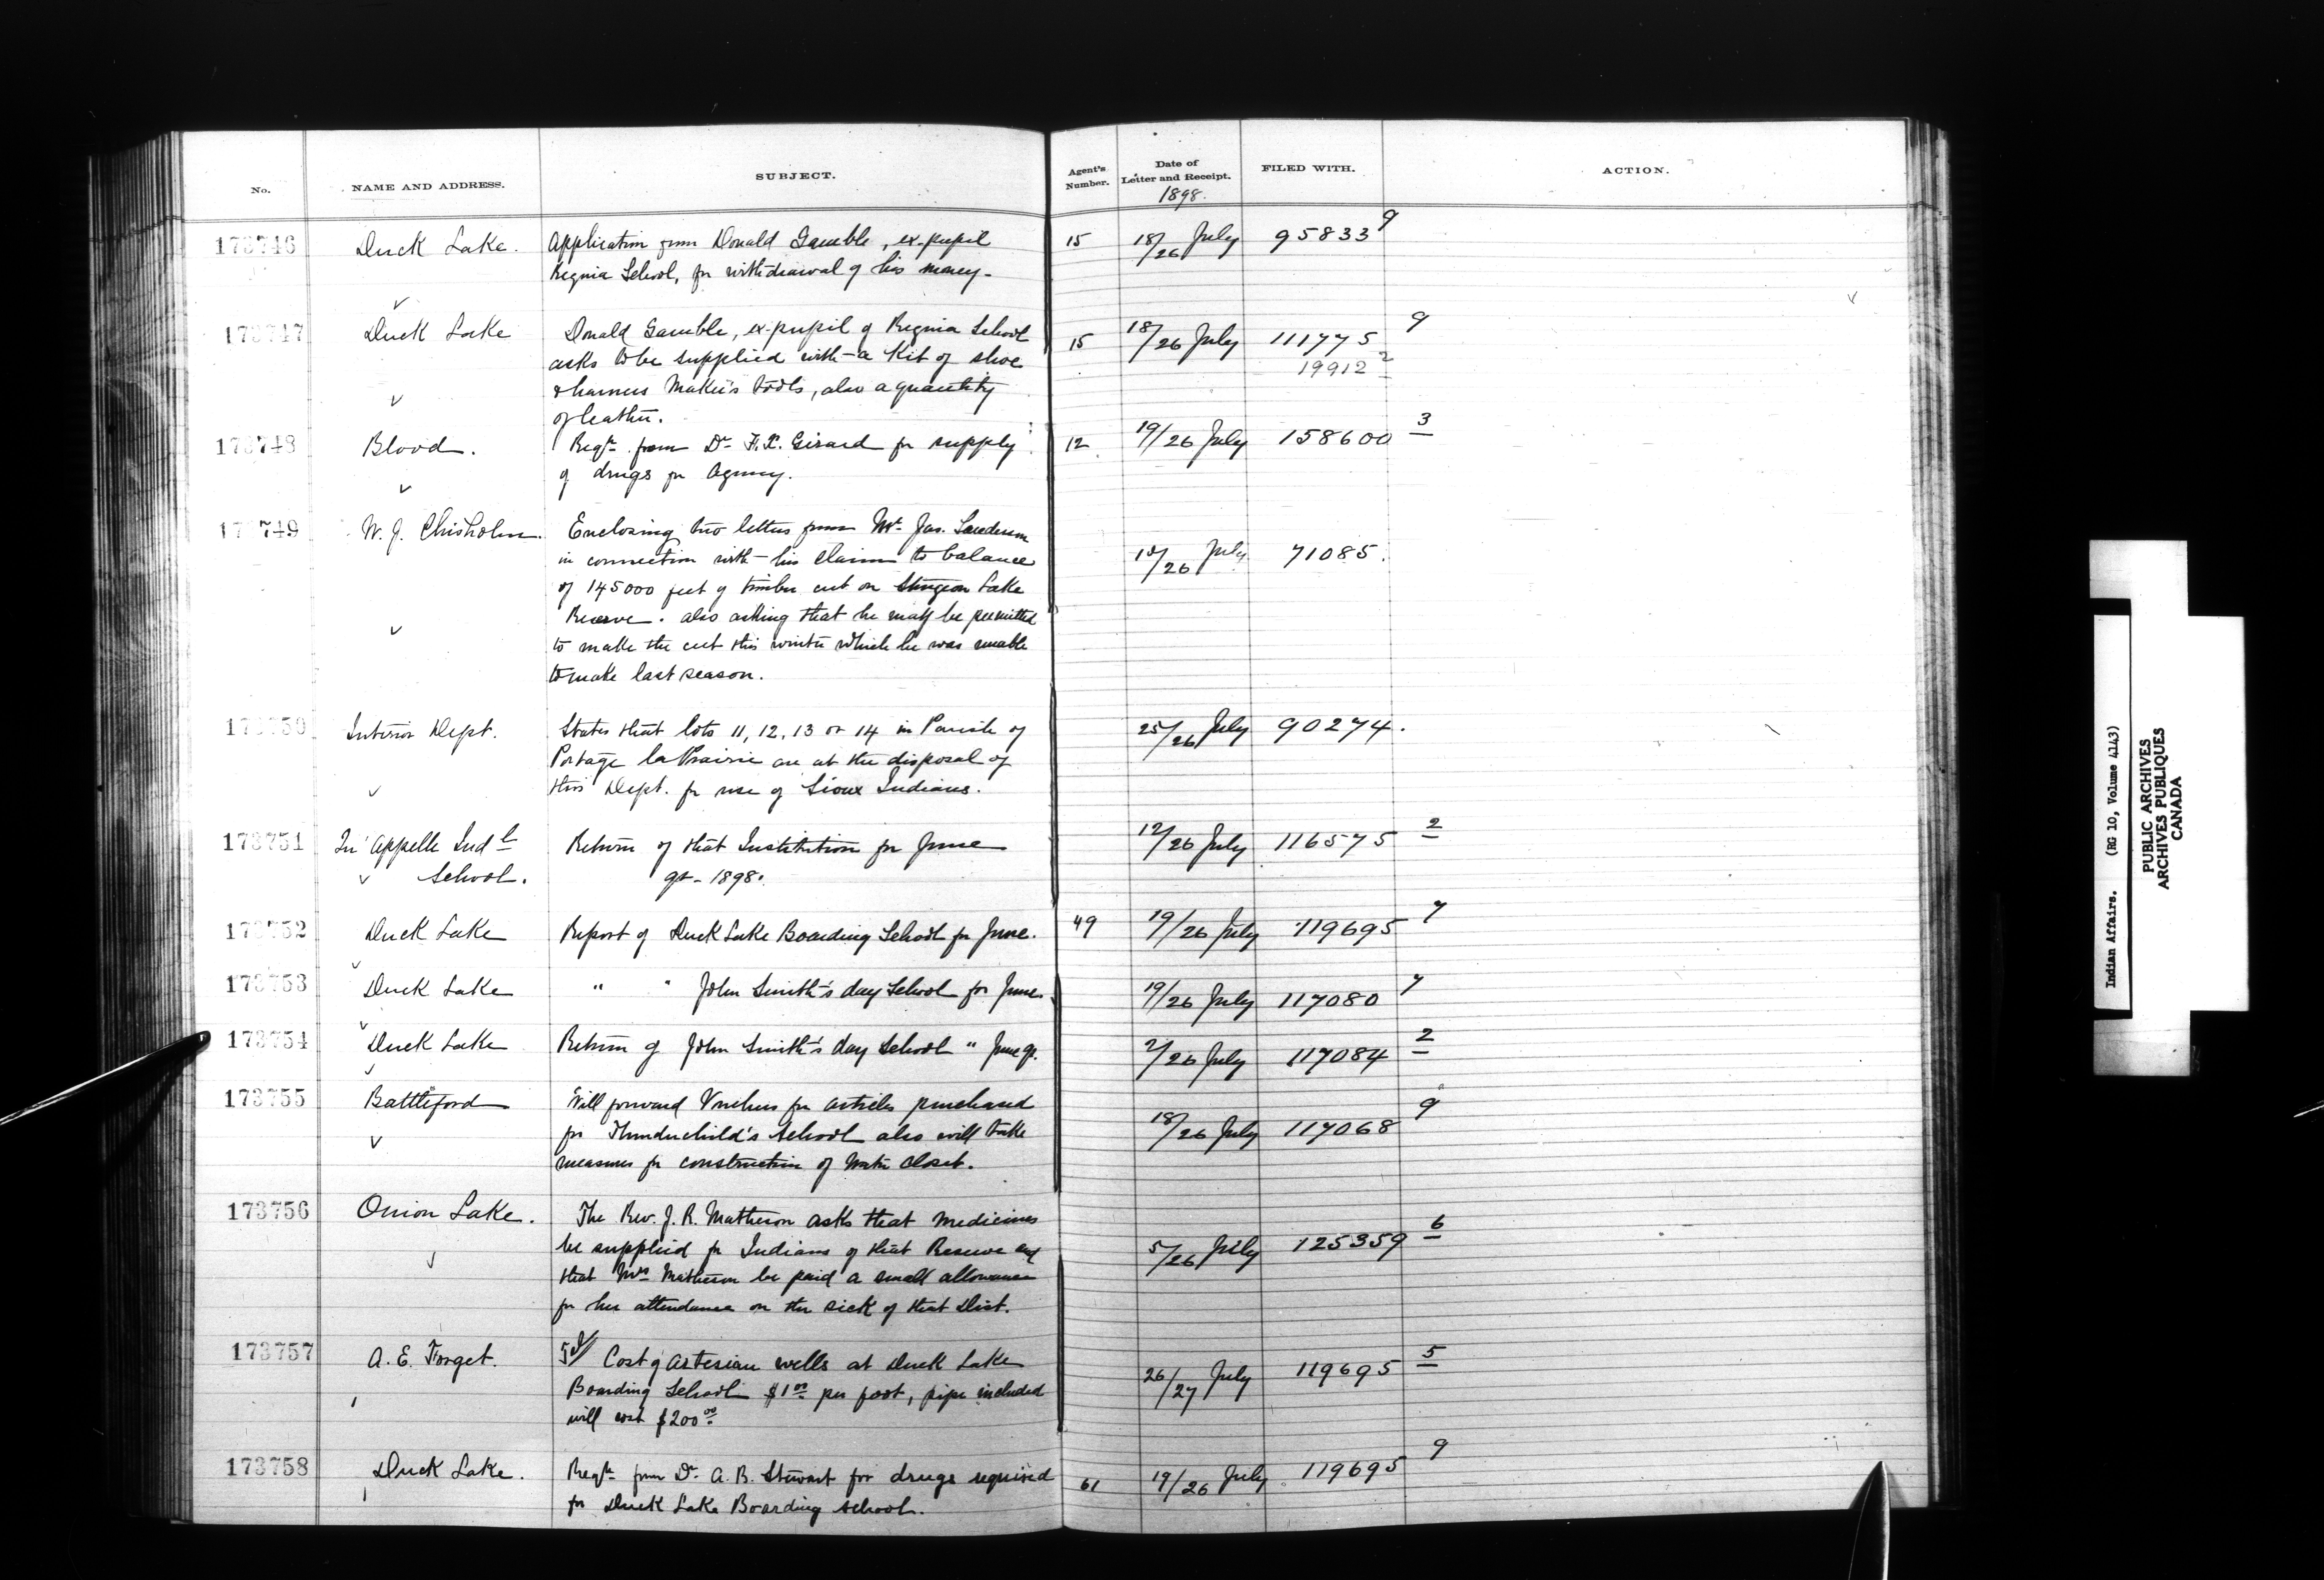 No. NAME AND ADDRESS. SUBJECT. Agent's Number. Date of Letter and Receipt. FILED WITH. ACTION.
1898.
173746 Duck Lake. Application from Donald Gamble, ex-pupil 15 18/26 July 95833 9
Regina School, for withdrawal of his money.
173747 Duck Lake Donald Gamble, ex-pupil of Regina School 15 18/26 July 111775 9
asks to be supplied with a Kit of shoe 19912 2
& harness Maker's tools, also a quantity
of leather.
173748 Blood. Reqn. from Dr. F.X. Girard for supply 12 19/26 July 158600 3
of drugs for Agency.
17 749 W. J. Chisholm. Enclosing two letters from Mr. Jas. Sanderson
in connection with his claim to balance 26 July 71085.
of 145000 feet of timber cut on Sturgeon Lake
Reserve. also asking that he may be permitted
to make the cut this winter which he was unable
to make last season.
173750 Interior Dept. States that lots 11, 12, 13 or 14 in Parish of 25/26 July 90274.
Portage la Prairie are at the disposal of
this Dept. for use of Sioux Indians.
173751 Qu'Appelle Indl. Return of that Institution for June 12/26 July 116575 2
School. qr. 1898.
173752 Duck Lake Report of Duck Lake Boarding School for June. 49 19/26 July 119695 7
173753 Duck Lake " " John Smith's day School for June. 19/26 July 117080 7
173754 Duck Lake Return of John Smith's day School " June qr. 2/26 July 117084 2
173755 Battleford Will forward Vouchers for articles purchased
for Thunderchild's School also will take 18/26 July 117068 9
measures for construction of water closet.
173756 Onion Lake. The Rev. J. R. Matheson asks that medicines
be supplied for Indians of that Reserve and 5/26 July 125359 6
that Mrs Matheson be paid a small allowance
for her attendance on the sick of that Dist.
173757 A. E. Forget. Cost of artesian wells at Duck Lake 26/27 July 119695 5
Boarding School $1 00 per foot, pipe included
will cost $200 00
173758 Duck Lake. Reqn. from Dr. A. B. Stewart for drugs required 61 19/26 July 119695 9
for Duck Lake Boarding School.
Indian Affairs. (RG 10, Volume 4143)
PUBLIC ARCHIVES
ARCHIVES PUBLIQUES
CANADA